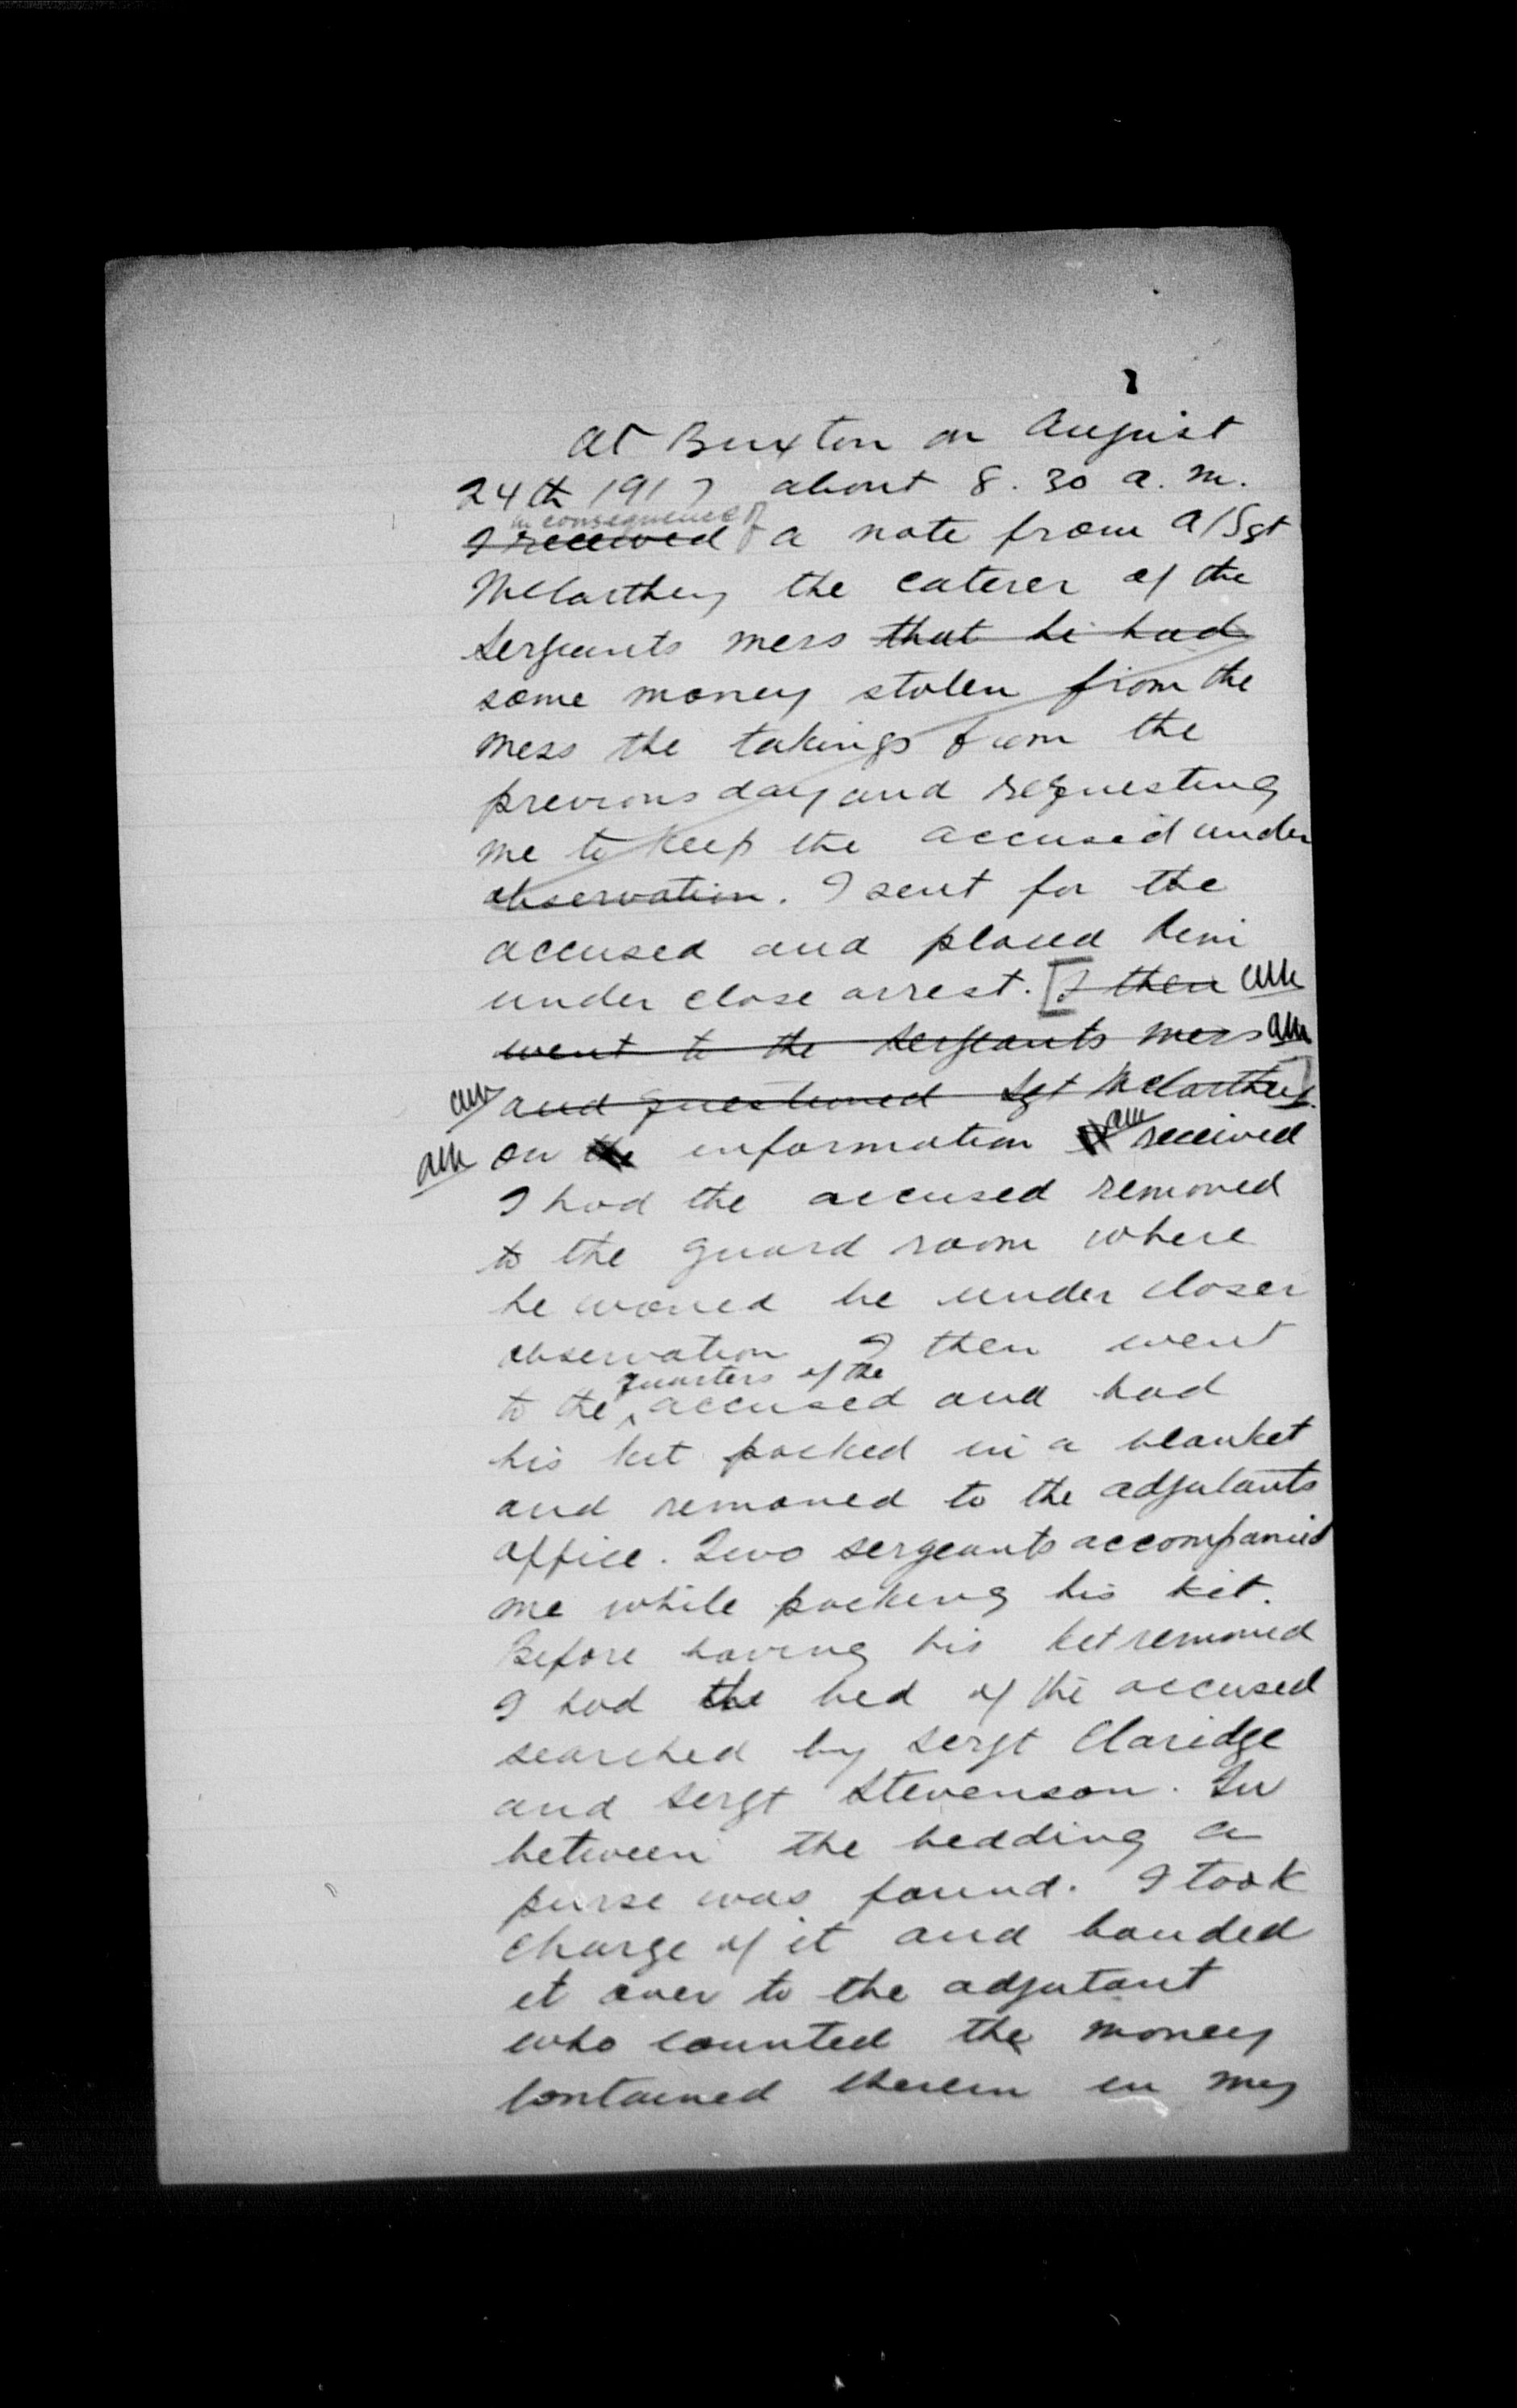 At Buxton on August
24th 1917 about 8.30 a.m.
in consequence of
I received a note from A/Sgt
McCarthey the caterer of the
Sergeants mess that he had
some money stolen from the
mess the takings from the
previous day and requesting
me to keep the accused under
observation. I sent for the
accused and placed him
under close arrest. [I then
went to the Sergeants mess
and questioned Sgt McCarthey]
on the information received
I had the accused removed
to the guard room where
he would be under closer
observation I then went
quarters of the
to the accused and had
his kit packed in a blanket
and removed to the adjutants
office. Two sergeants accompanied
me while packing his kit.
Before having his kit removed
I had the bed of the accused
searched by Sergt Claridge
and Sergt Stevenson. In
between the bedding a
purse was found. I took
charge of it and handed
it over to the adjutant
who counted the money
contained therein in my